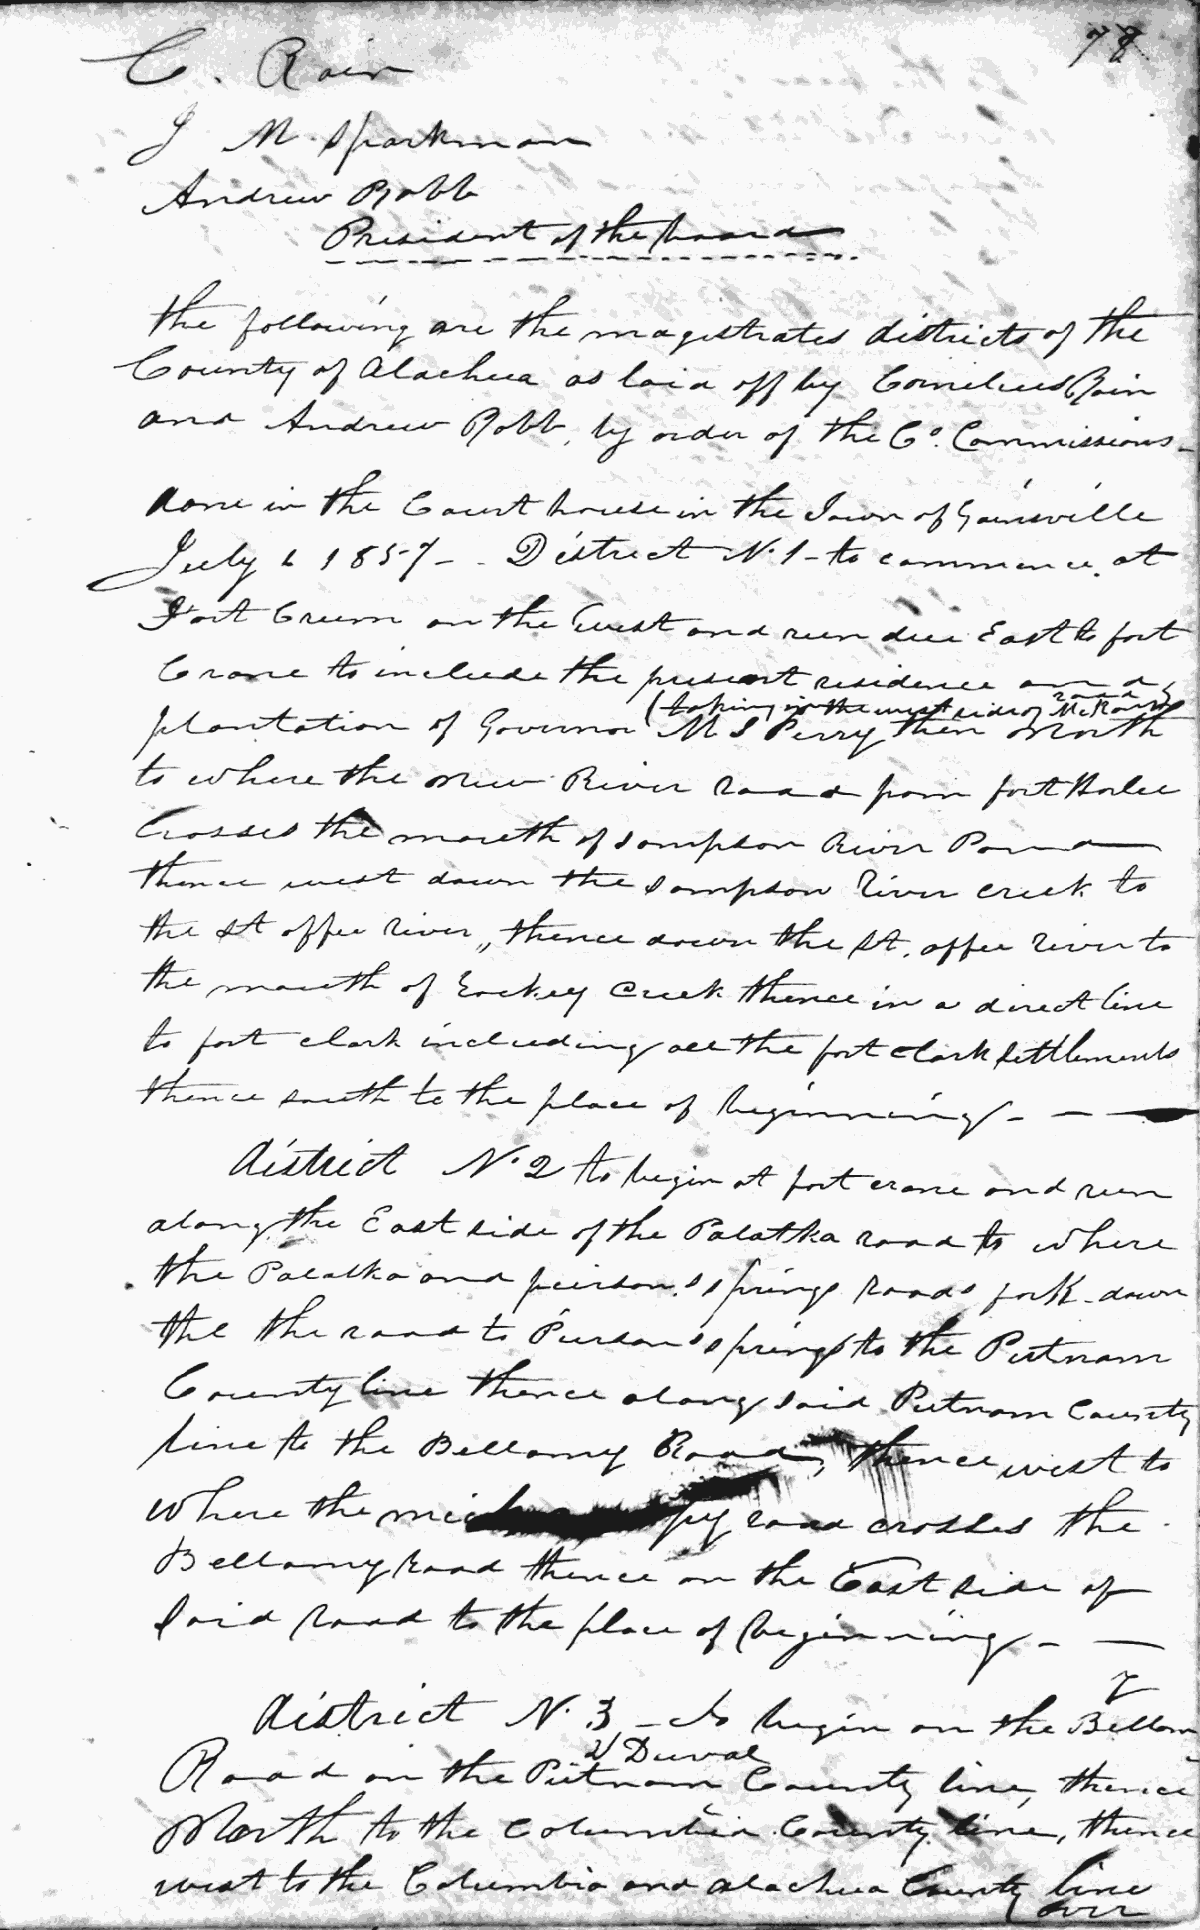 78
C. Rain
J M Sparkman
Andrew Robb
President of the board
the following are the magistrates districts of the
County of Alachua as laid off by Cornelius Rain
and Andrew Robb, by order of the Co. Commissions-
done in the Court house in the Town of Gainsville
July 6 1857 - - District N. 1 - to commence at
Fort Crum on the West and run due East to fort
Crane to include the present residence and
(taking in the west side of road
plantation of Governor M S Perry then North
to where the new River road from fort Harlee
Crosses the mouth of Sampson River Pond
thence west down the Sampson River creek to
the St affee river, thence down the St. affee River to
the mouth of Rockey Creek thence in a direct line
to fort clark including all the fort clark settlements
thence south to the place of beginning - -
district N. 2 to begin at fort crane and run
along the East side of the Palatka road to where
the Palatka and peirson,s springs roads fork - down
the the road to Peirson's springs to the Putnam
County line thence along said Putnam County
line to the Bellamy Road, thence west to
where the road crosses the
Bellamy Road thence on the East side of
said road to the place of beginning - -
district N. 3 - to begin on the Bellamy
& Duval
Road on the Putnam County line, thence
North to the Columbia County line, thence
west to the Columbia and Alachua County line
over